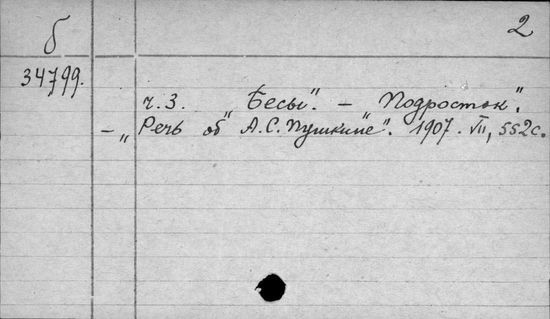 б
2
34799.
ч. 3. "Бесы". – "Подросток".
– "Речь об А.С. Пушкине". 1907. VII, 552 с.